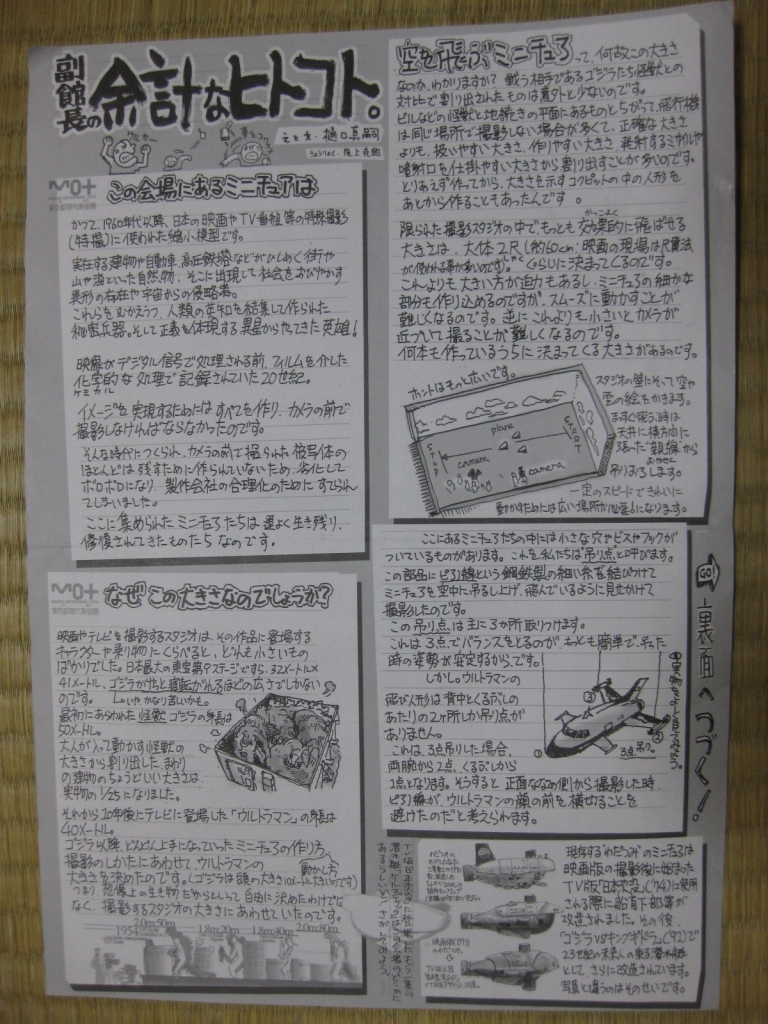 副館長の余計なヒトコト。
え と 文・樋口真嗣
きょうりょく・尾上克郎
MO+
東京都現代美術館
この会場にあるミニチュアは
かつて、1960年代以降、日本の映画やTV番組等の特殊撮影
(特撮)に使われた縮小模型です。
実在する建物や自動車、高圧鉄塔などがひしめく街や
山や海といった自然物、そこに出現して社会をおびやかす
異形の存在や宇宙からの侵略者。
これらをむかえうつ、人類の英知を結集して作られた
秘密兵器。そして正義を体現する異星からやってきた英雄!
映像がデジタル信号で処理される前、フィルムを介した
化学的な処理で記録されていた20世紀。
ケミカル
イメージを実現するためにはすべてを作り、カメラの前で
撮影しなければならなかったのです。
そんな時代につくられ、カメラの前で撮られた被写体の
ほとんどは残すために作られていないため、劣化して
ボロボロになり、製作会社の合理化のためにすてられ
てしまいました。
ここに集められたミニチュアたちは運よく生き残り、
修復されてきたものたちなのです。
MO+
東京都現代美術館
なぜこの大きさなのでしょうか?
映画やテレビを撮影するスタジオは、その作品に登場する
キャラクターや乗り物にくらべると、どれも小さいもの
ばかりでした。日本最大の東宝第9ステージですら、32メートル×
41メートル、ゴジラがやっと寝転がれるほどの広さでしかない
のです。
いやかなり苦しいかも。
最初にあらわれた怪獣ゴジラの身長は
50メートル。
大人が入って動かす怪獣の
大きさから割り出した、まわり
の建物のちょうどいい大きさは
実物の1/25になりました。
それから10年後にテレビに登場した「ウルトラマン」の身長は
40メートル。
ゴジラ以降、どんどん上手になっていったミニチュアの作り方、
撮影のしかたにあわせて、ウルトラマンの
動かし方
大きさを決めたのです。(ゴジラは頭の大きさ10メートル大きいのです)
つまり、想像上の生き物だからといって自由に決めたわけでは
なく、撮影するスタジオの大きさにあわせていたのです。
1954
2.0m:50m
1.8m:20m
1.8m:40m
2.0m:80m
空を飛ぶミニチュアって、何故この大きさ
なのか、わかりますか? 戦う相手であるゴジラたち怪獣との
対比で割り出されたものは意外と少ないのです。
ビルなどの怪獣と地続きの平面にあるものとちがって、飛行機
は同じ場所で撮影しない場合が多くて、正確な大きさ
よりも、扱いやすい大きさ、作りやすい大きさ、発射するミサイルや
噴射口を仕掛けやすい大きさから割り出すことが多いのです。
とりあえず作ってから、大きさを示すコクピットの中の人形を
あとから作ることもあったんです。
限られた撮影スタジオの中でもっとも効果的に飛ばせる
かっこよく
大きさは、大体2尺(約60cm・映画の現場は尺貫法
が使われる事が多いのです)。くらいに決まってくるのです。
これよりも大きい方が迫力もあるし、ミニチュアの細かな
部分も作り込めるのですが、スムーズに動かすことが
難しくなるのです。逆にこれよりも小さいとカメラが
近づいて撮ることが難しくなるのです。
何本も作っているうちに決まってくる大きさがあるのです。
ホントはもっと広いです。
plane
STOP
START
camera
camera
スタジオの壁にそって空や
雲の絵をかきます。
まっすぐ飛ぶ時は
天井に横方向に
張った"親線"から
おやせん
吊りおろします。
一定のスピードできれいに
動かすためには広い場所が必要になります。
ここにあるミニチュアたちの中には小さな穴やビスやフックが
ついているものがあります。これを私たちは吊り点と呼びます。
この部品にピアノ線という鋼鉄製の細い糸を結びつけて
ミニチュアを空中に吊るし上げ、飛んでいるように見せかけて
撮影したのです。
この吊り点は主に3か所取りつけます。
これは、3点でバランスをとるのが、もっとも簡単で、吊った
時の姿勢が安定するから、です。
しかし。ウルトラマンの
飛び人形は背中とくるぶしの
あたりの2ヶ所しか吊り点が
ありません。
これは、3点吊りした場合、
両腕から2点、くるぶしから
1点となります。そうすると、正面ななめ側から撮影した時、
ピアノ線が、ウルトラマンの顔の前を横切ることを
避けたのだと考えられます。
①
②
③
3点吊り。
実物をよーく見てみよう。
GO! 裏面へつづく!
現存する"わだつみ"のミニチュアは
映画版の撮影後に始まった
TV版「日本沈没」('74)に使用
される際に船首下部等が
改造されました。その後、
「ゴジラVSキングギドラ」('92)で
23世紀の未来人の乗る潜水艇
として、さらに改造されています。
写真と違うのはそのせいです。